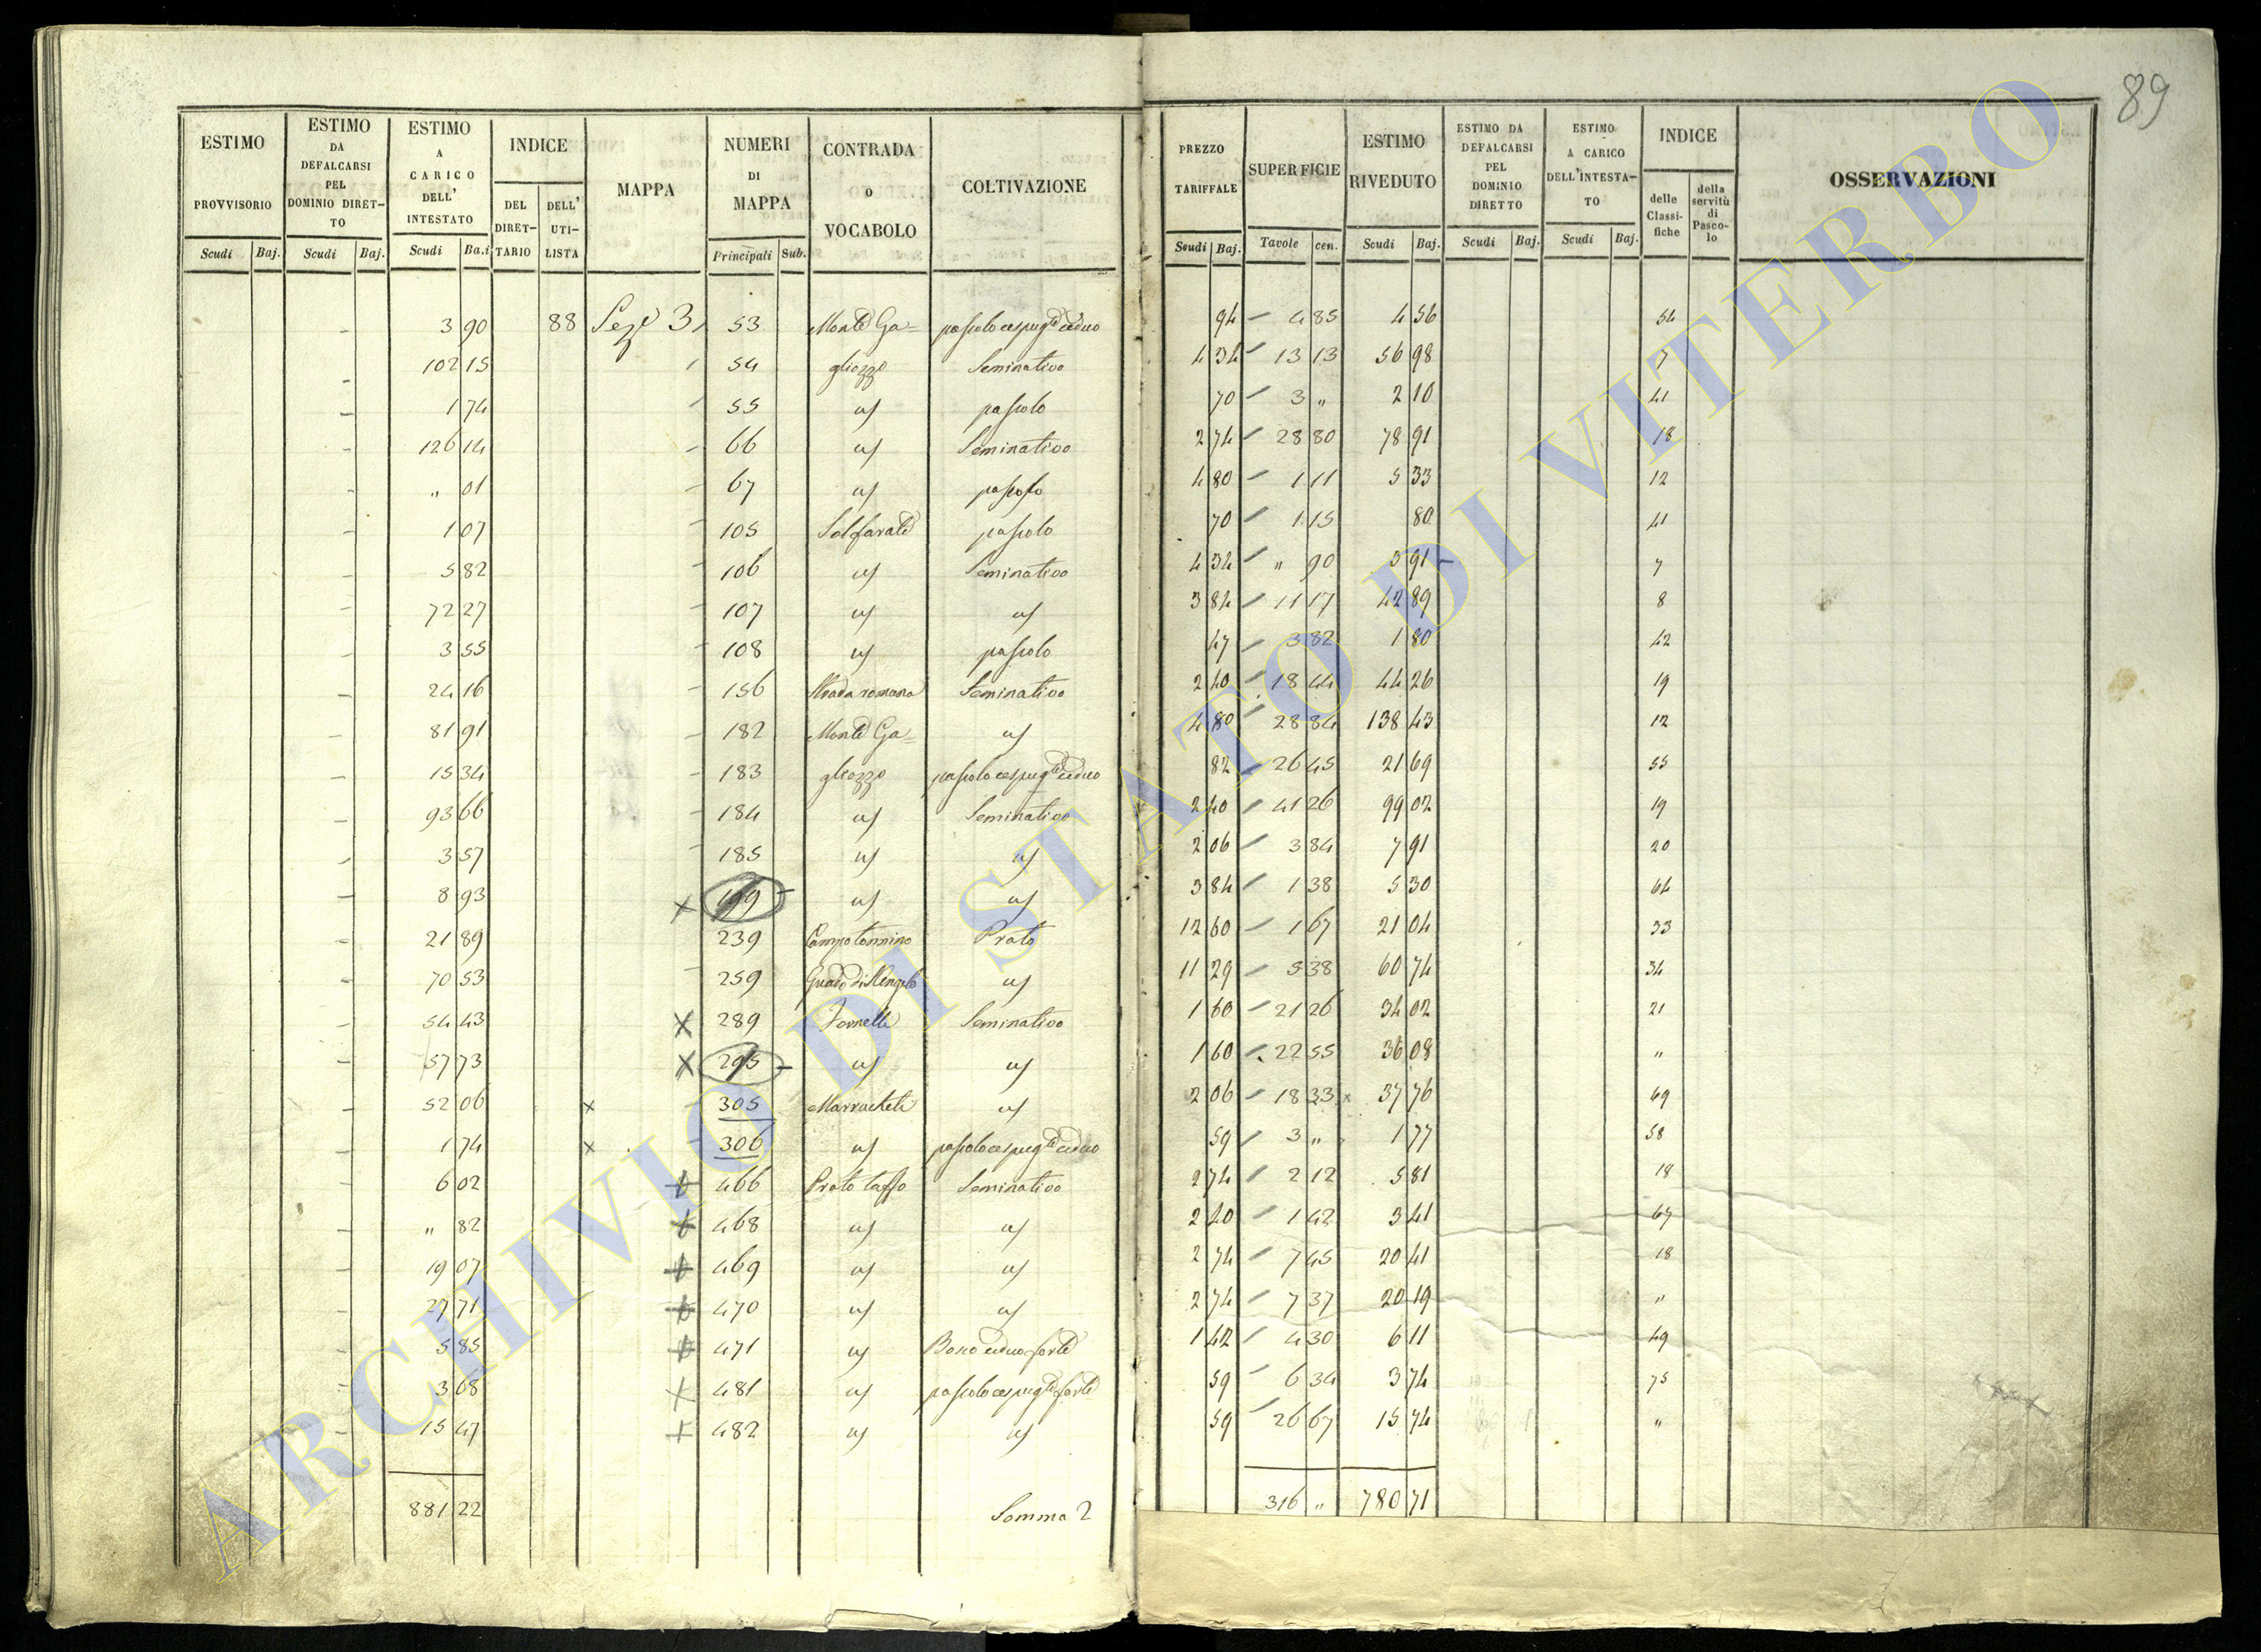 89
ESTIMO PROVVISORIO | ESTIMO DA DEFALCARSI PEL DOMINIO DIRET-TO | ESTIMO A CARICO DELL' INTESTATO | INDICE DEL DIRET-TARIO | DELL' UTI-LISTA | MAPPA | NUMERI DI MAPPA | CONTRADA O VOCABOLO | COLTIVAZIONE | PREZZO TARIFFALE | SUPERFICIE | ESTIMO RIVEDUTO | ESTIMO DA DEFALCARSI PEL DOMINIO DIRETTO | ESTIMO A CARICO DELL'INTESTA-TO | INDICE delle Classi-fiche | della servitù di Pasco-lo | OSSERVAZIONI
Scudi | Baj. | Scudi | Baj. | Scudi | Ba.i | Principali | Sub. | Scudi | Baj. | Tavole | cen. | Scudi | Baj. | Scudi | Baj. | Scudi | Baj.
3 90 | 88 | Seze 3 | 53 | Monte Ga= | pascolo cespugto ceduo | 94 | 4 85 | 4 56 | 54
102 15 | 54 | gliozzo | Seminativo | 4 34 | 13 13 | 56 98 | 7
1 74 | 55 | us | pascolo | 70 | 3 " | 2 10 | 41
126 14 | 66 | us | Seminativo | 2 74 | 28 80 | 78 91 | 18
" 01 | 67 | us | pascolo | 4 80 | 1 11 | 5 33 | 12
1 07 | 105 | Solfarate | pascolo | 70 | 1 15 | 80 | 41
5 82 | 106 | us | Seminativo | 4 34 | " 90 | 3 91 | 7
72 27 | 107 | us | us | 3 84 | 11 17 | 42 89 | 8
3 55 | 108 | us | pascolo | 47 | 3 82 | 1 80 | 42
24 16 | 156 | Strada romana | Seminativo | 2 40 | 18 44 | 44 26 | 19
81 91 | 182 | Monte Ga= | us | 4 80 | 28 84 | 138 43 | 12
15 34 | 183 | gliozzo | pascolo cespugto ceduo | 82 | 26 45 | 21 69 | 55
93 66 | 184 | us | Seminativo | 2 40 | 41 26 | 99 02 | 19
3 57 | 185 | us | us | 2 06 | 3 84 | 7 91 | 20
8 93 | x 199 | us | us | 3 84 | 1 38 | 5 30 | 64
21 89 | 239 | Campotonnino | Prato | 12 60 | 1 67 | 21 04 | 33
70 53 | 259 | Guado di | us | 11 29 | 5 38 | 60 74 | 34
54 43 | x 289 | Fornelli | Seminativo | 1 60 | 21 26 | 34 02 | 21
57 73 | x 295 | us | us | 1 60 | 22 55 | 36 08 | "
52 06 | x 305 | | us | 2 06 | 18 33 | x 37 76 | 69
1 74 | x 306 | us | pascolo cespugto ceduo | 59 | 3 " | 1 77 | 58
6 02 | 466 | Prato tasso | Seminativo | 2 74 | 2 12 | 5 81 | 18
" 82 | 468 | us | us | 2 40 | 1 42 | 3 41 | 67
19 07 | 469 | us | us | 2 74 | 7 45 | 20 41 | 18
27 71 | 470 | us | us | 2 74 | 7 37 | 20 19 | "
5 85 | 471 | us | Bosco ceduo forte | 1 42 | 4 30 | 6 11 | 49
3 68 | 481 | us | pascolo cespugto forte | 59 | 6 34 | 3 74 | 75
15 47 | 482 | us | us | 59 | 26 67 | 15 74 | "
881 22 | Somma 2 | 316 " | 780 71
ARCHIVIO DI STATO DI VITERBO